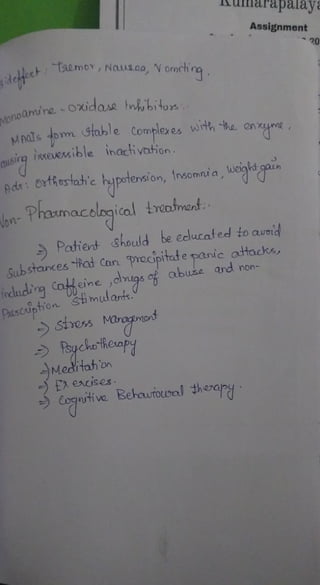 Kumarapalaya
Assignment
20
sideffect : Tremor, Nausea, Vomiting.
Monoamine - oxidase Inhibitors :
MAOIs form stable complexes with the enzyme,
causing irreversible inactivation.
Adr : Orthostatic hypotension, Insomnia, weight gain
Non- Pharmacological treatment:
=> Patient should be educated to avoid
Substances that can precipitate panic attacks,
including caffeine, drugs of abuse and non-
Prescription stimulants.
=> Stress Management
=> Psychotherapy
=> Meditation
=> Exercises.
=> Cognitive Behavioural therapy.